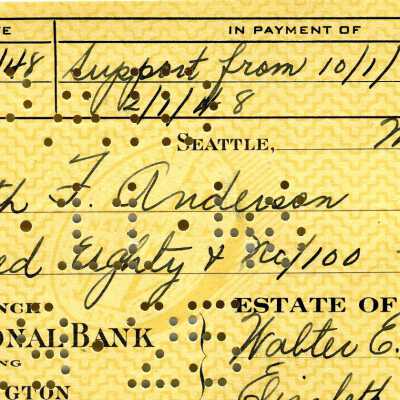 TE IN PAYMENT OF
/48 Support from 10/1/
2/1/48
SEATTLE,
th F. Anderson
ed Eighty & No/100
NCH ESTATE OF
ONAL BANK Walter E.
NG Elizabeth
NGTON